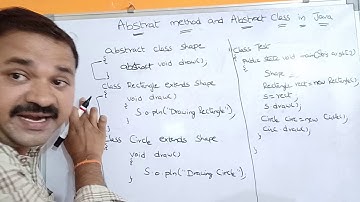 Abstrat method and Abstract Class in Java
abstract class shape
{
abstract void draw();
}
class Rectangle extends shape
{
void draw()
{
S.o.pln("Drawing Rectangle");
}
}
class Circle extends shape
void draw()
{
S.o.pln("Drawing Circle");
}
class Test
{
public static void main(String args[])
{
Shape
Rectangle rect=new Rectangle();
s=rect
s.draw();
Circle circ=new Circle();
circ.draw();
}
}